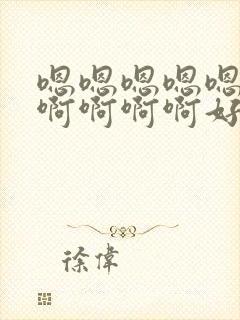 嗯嗯嗯嗯嗯
啊啊啊啊好
徐偉